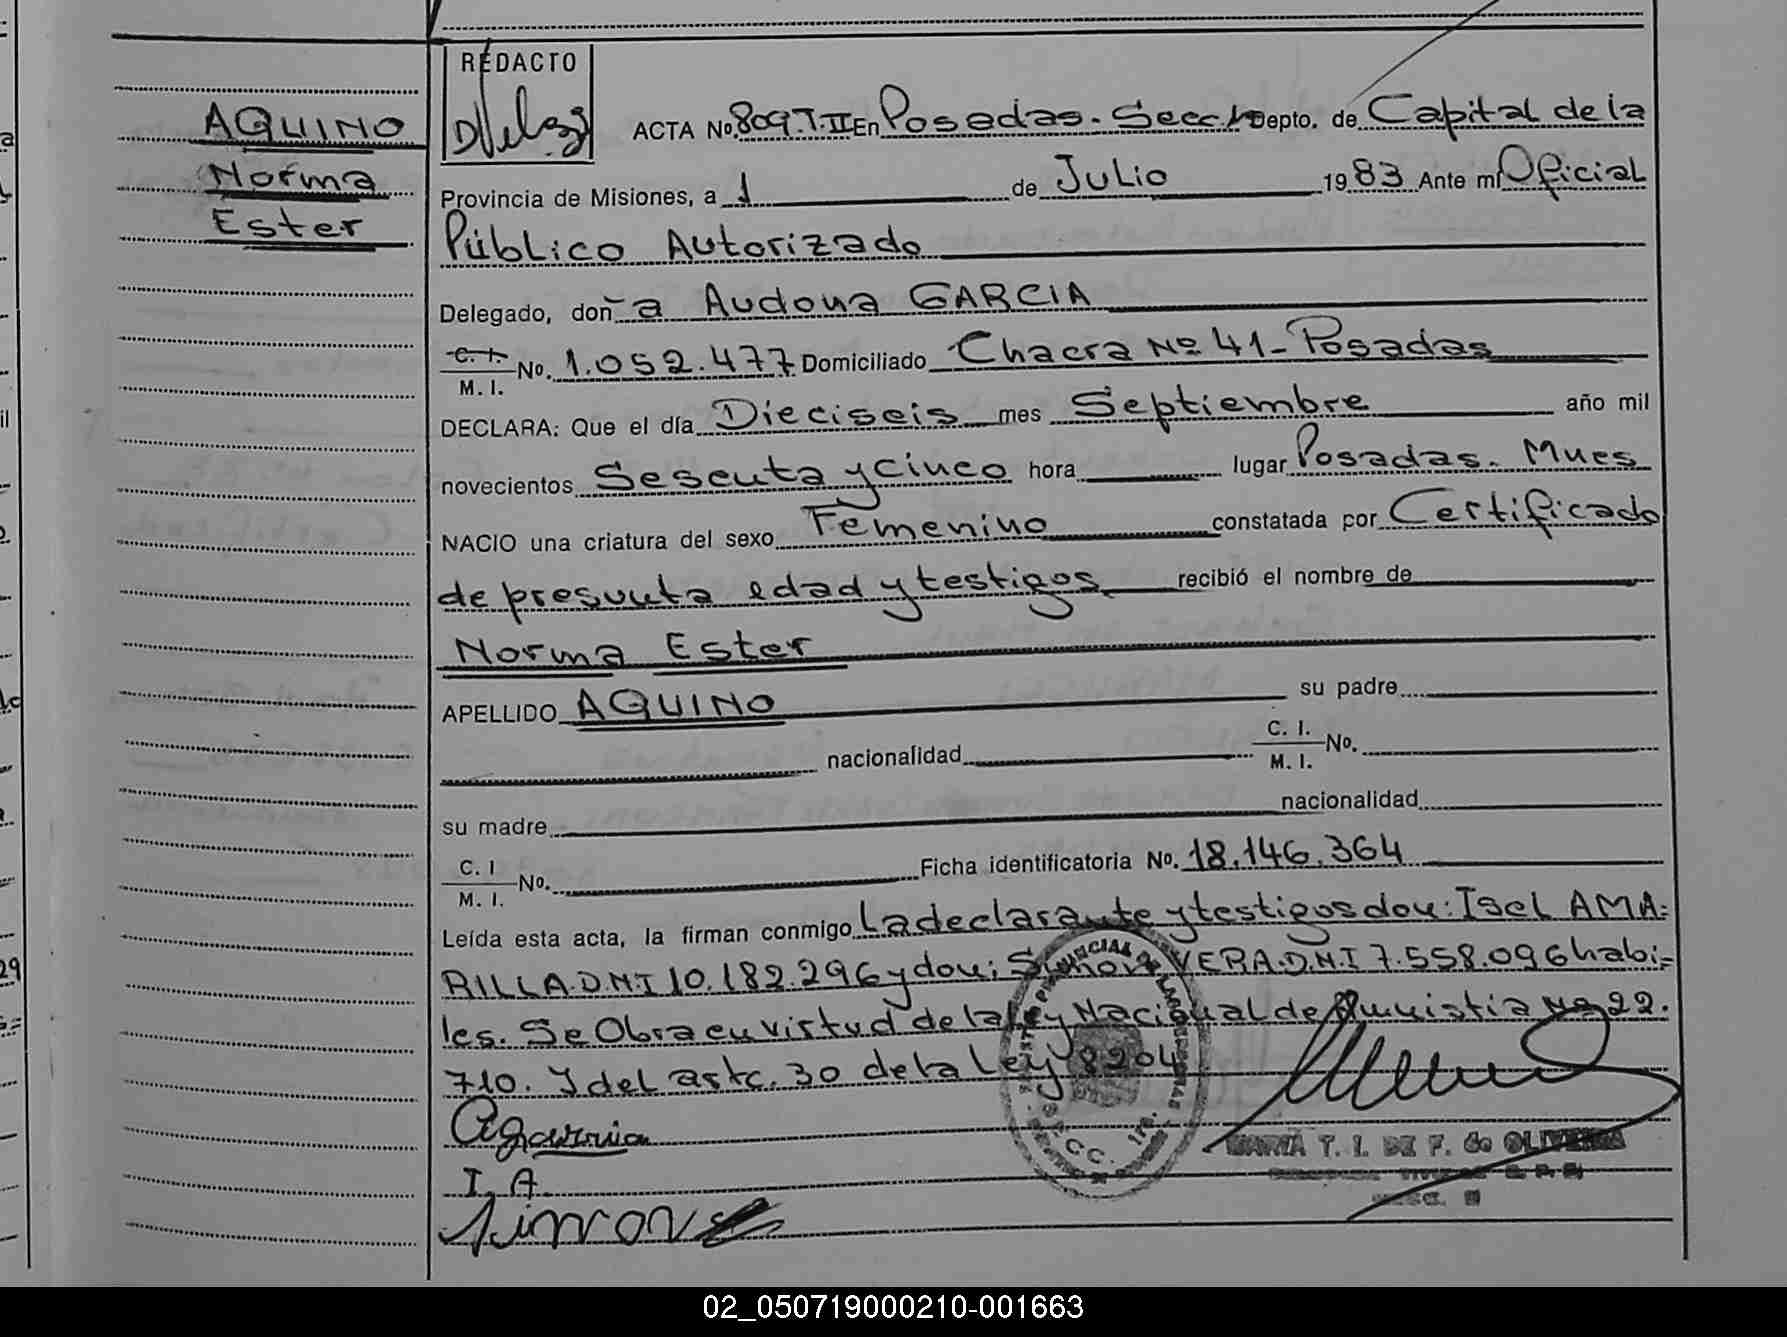 AQUINO
Norma
Ester
REDACTO
ACTA No. 809.T.II En Posadas. Secc. Depto. de Capital de la
Provincia de Misiones, a 1 de Julio 1983 Ante mí Oficial
Público Autorizado
Delegado, don a Audona GARCIA
C. I. / M. I. No. 1.052.477 Domiciliado Chacra Nº 41 - Posadas
DECLARA: Que el día Dieciseis mes Septiembre año mil
novecientos Sesenta y cinco hora lugar Posadas. Mnes
NACIO una criatura del sexo Femenino constatada por Certificado
de presunta edad y testigos recibió el nombre de
Norma Ester
APELLIDO AQUINO su padre
nacionalidad C. I. / M. I. No.
su madre nacionalidad
C. I / M. I. No. Ficha identificatoria No. 18.146.364
Leída esta acta, la firman conmigo La declarante y testigos don: Isel AMA=
RILLA.D.N.I 10.182.296 y don: Simon VERA.D.N.I 7.558.096 habi=
les. Se Obra en virtud de la ley Nacional de Amnistia Nº 22.
710. Y del artc. 30 de la Ley 8204
I. A
Simon
MARIA T. I. DE F. de OLIVEIRA
02_050719000210-001663